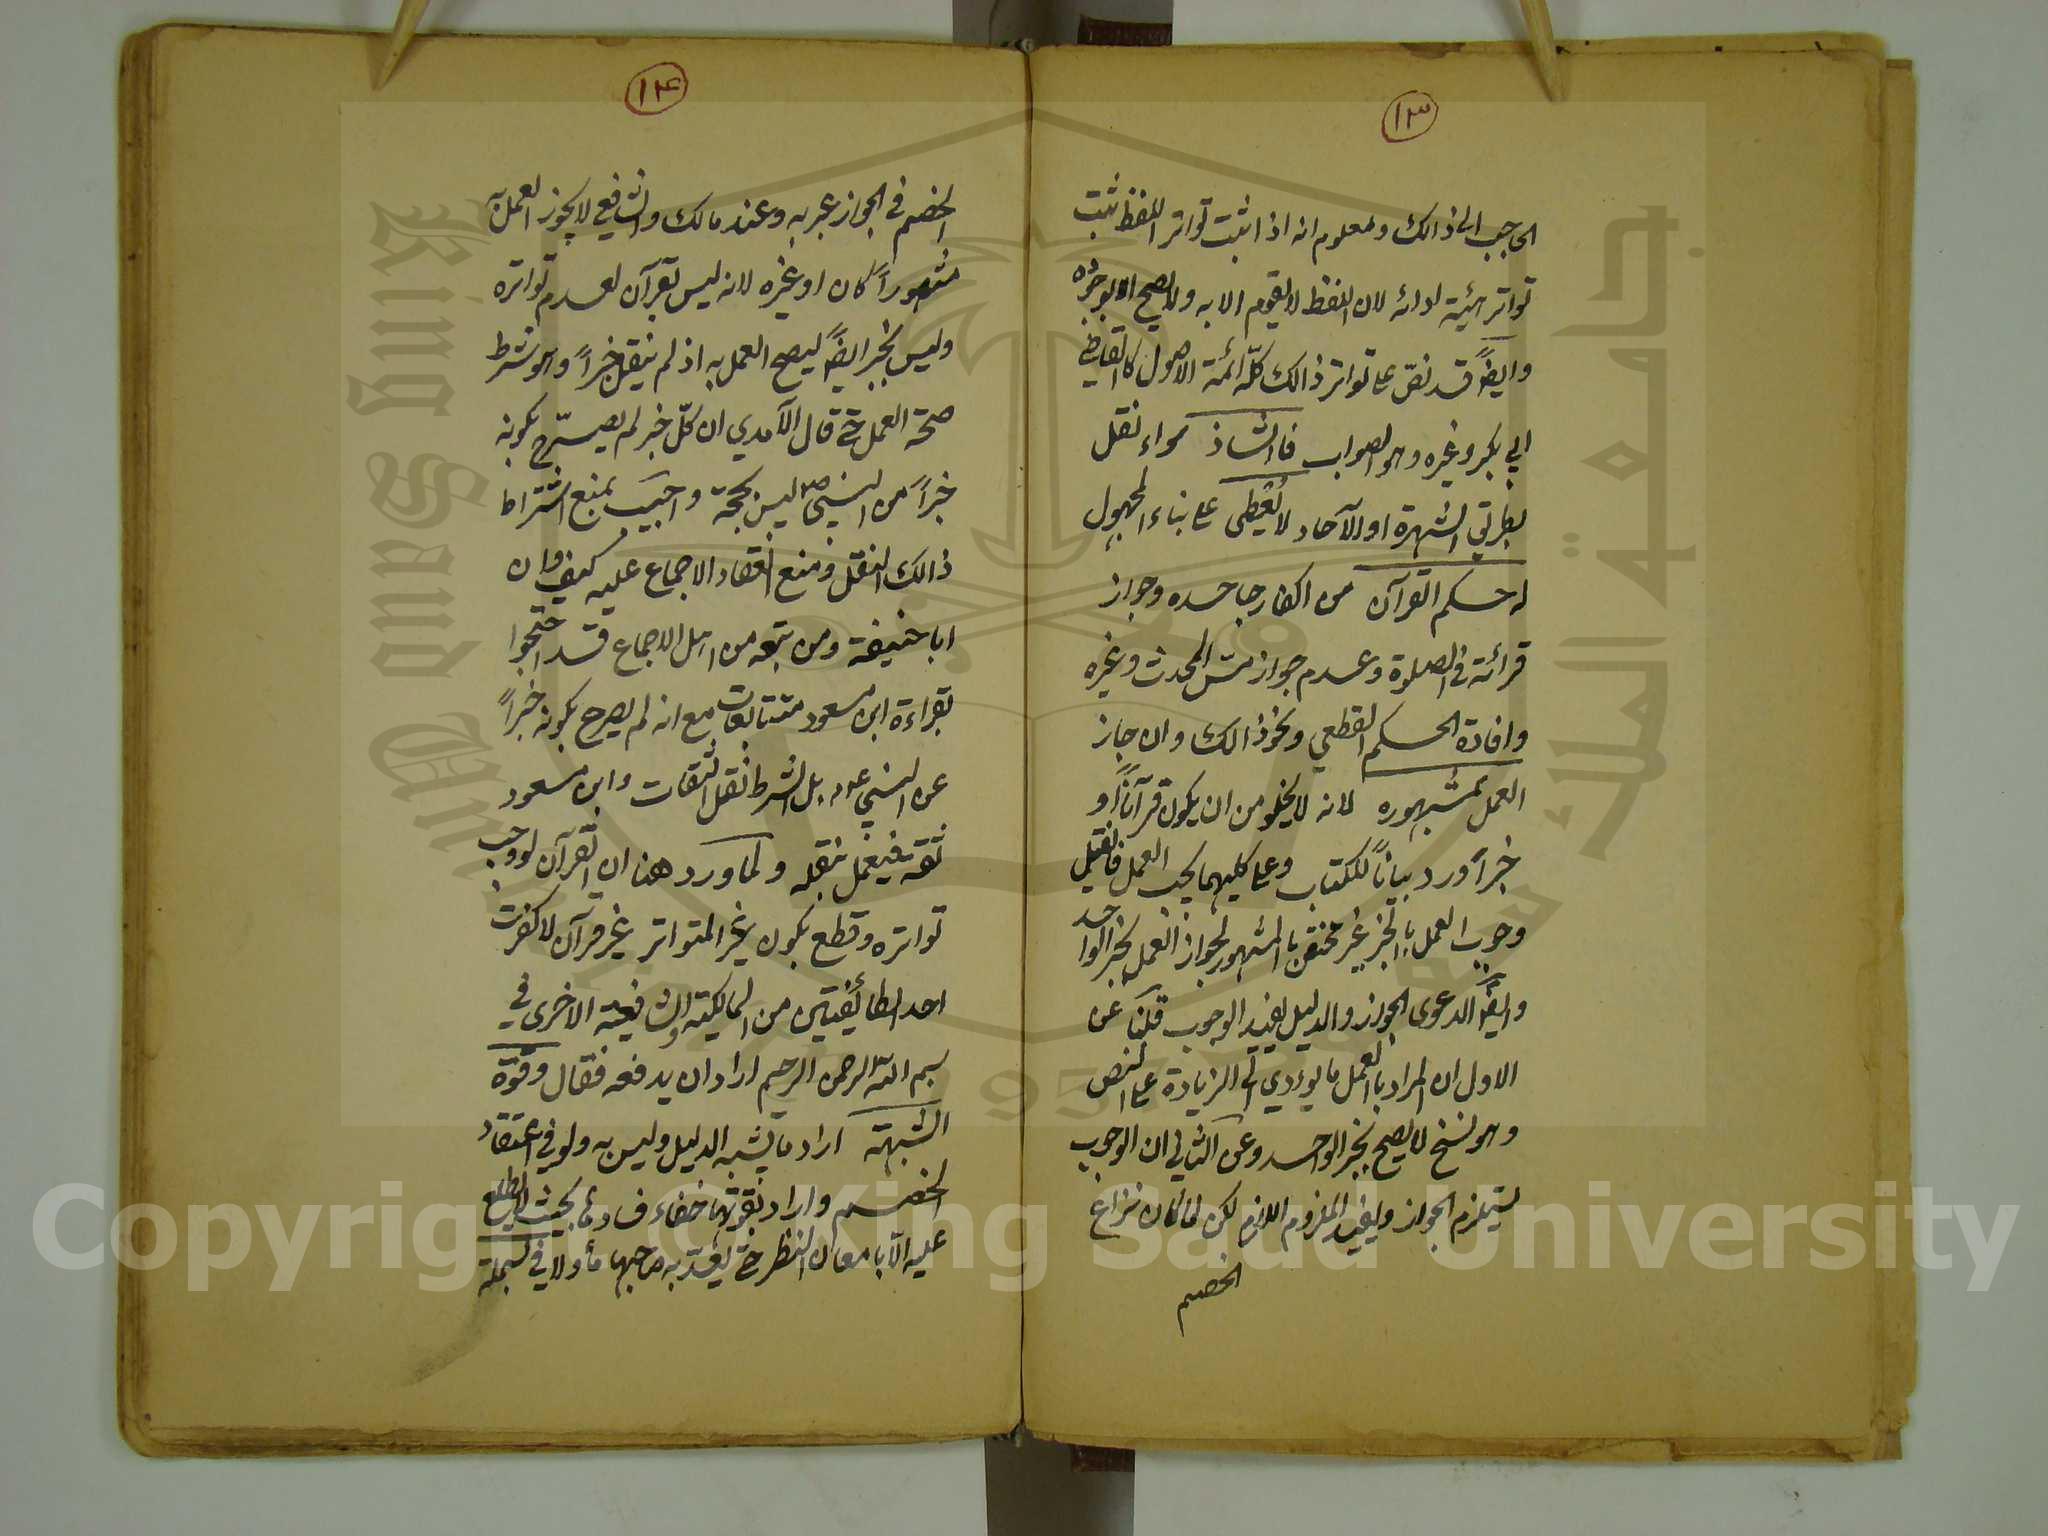 ١٣
الحاجب الى ذالك ومعلوم انه اذا ثبت تواتر اللفظ ثبت
تواتر هيئة ادائه لان اللفظ لا يقوم الا به ولا يصح الا بوجوده
وايضاً قد نصّ على تواتر ذالك كلّه ائمة الاصول كالقاضي
ابي بكر وغيره وهو الصواب فالشاذ سواء نقل
بطريق الشهرة او الآحاد لا يُعْطى على بناء المجهول
له حكم القرآن من اكفار جاحده وجواز
قرائة في الصلوة وعدم جواز مسّ المحدث وغيره
وافادة الحكم القطعي ونحو ذالك وان جاز
العمل بمشهوره لانه لا يخلو من ان يكون قرآناً او
خبراً ورد بياناً للكتاب وعلى كليهما يجب العمل فان قيل
وجوب العمل بالخبر غير مختص بالمشهور لجواز العمل بخبر الواحد
وايضاً الدعوى الجواز والدليل يفيد الوجوب قلنا عن
الاول ان المراد بالعمل ما يؤدي الى الزيادة على النص
وهو نسخ لا يصح بخبر الواحد وعن الثاني ان الوجوب
يستلزم الجواز ويفيد الملزوم اللازم لكن لما كان نزاع
الخصم
١٤
الخصم في الجواز عبر به وعند مالك والشافعي لا يجوز العمل به
مشهوراً كان او غيره لانه ليس بقرآن لعدم تواتره
وليس بخبر ايضاً ليصح العمل به اذ لم ينقل خبراً وهو شرط
صحة العمل حتى قال الآمدي ان كلّ خبر لم يصرّح بكونه
خبراً من النبي ص ليس بحجة واجيب بمنع اشتراط
ذالك النقل ومنع انعقاد الاجماع عليه كيف وان
ابا حنيفة ومن تبعه من اهل الاجماع قد احتجوا
بقراءة ابن مسعود متتابعات مع انه لم يصرح بكونه خبراً
عن النبي عم بل الشرط نقل الثقات وابن مسعود
ثقة فيعمل بنقله ولما ورد هنا ان القرآن لو وجب
تواتره وقطع بكون غير المتواتر غير قرآن لاكفرت
احد الطائفتين من المالكية والشافعية الاخرى في
بسم الله الرحمن الرحيم اراد ان يدفعه فقال وقوة
الشبهة اراد ما يشبه الدليل وليس به ولو في اعتقاد
الخصم واراد بقوتها خفاء فسادها بحيث لا يطلع
عليه الا بامعان النظر حتى يعدّ به صاحبها مأولا في البسملة